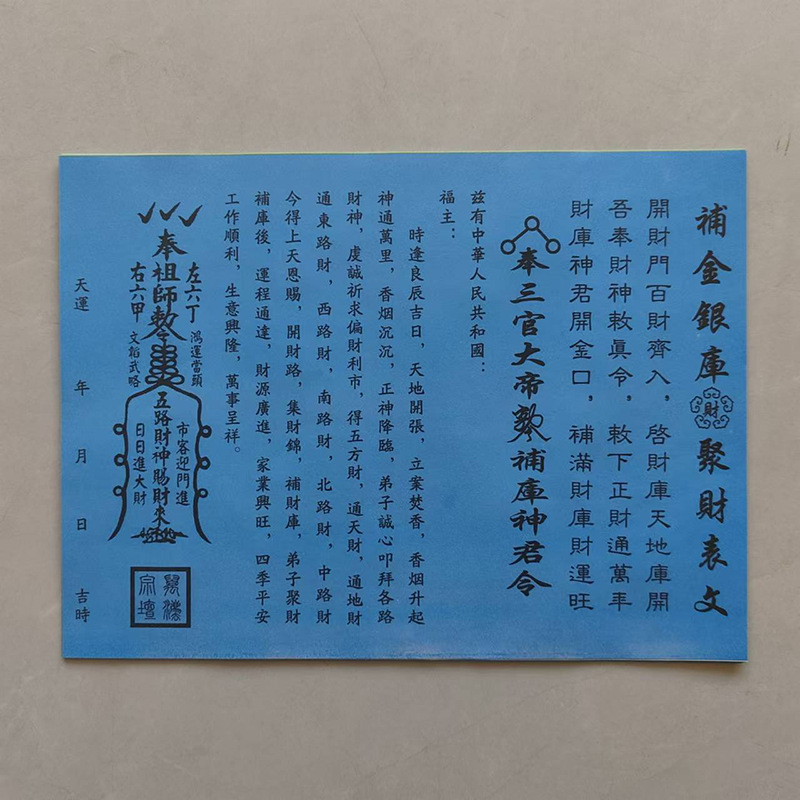 補金銀庫財聚財表文
開財門百財齊入，啓財庫天地庫開
吾奉財神敕真令，敕下正財通萬年
財庫神君開金口，補滿財庫財運旺
奉三官大帝敕令補庫神君令
兹有中華人民共和國：
福主：
時逢良辰吉日，天地開張，立案焚香，香烟升起
神通萬里，香烟沉沉，正神降臨，弟子誠心叩拜各路
財神，虔誠祈求偏財利市，得五方財，通天財，通地財
通東路財，西路財，南路財，北路財，中路財
今得上天恩賜，開財路，集財錦，補財庫，弟子聚財
補庫後，運程通達，財源廣進，家業興旺，四季平安
工作順利，生意興隆，萬事呈祥。
鴻運當頭
左六丁
奉祖師敕令
右六甲
文韜武略
市客迎門進
五路財神賜財來
日日進大財
天運 年 月 日 吉時